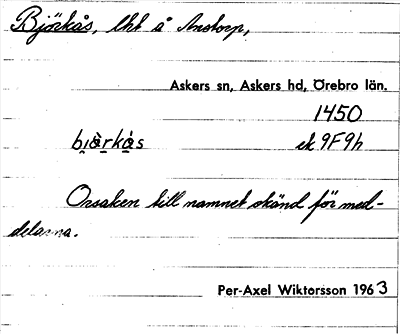 Björkås, lht å Anstorp,
Askers sn, Askers hd, Örebro län.
1450
bjö̀rkå̀s ek 9F9h
Orsaken till namnet okänd för med-
delarna.
Per-Axel Wiktorsson 1963